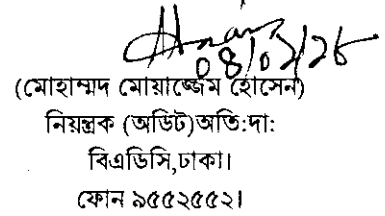 (মোহাম্মদ মোয়াজ্জেম হোসেন)
নিয়ন্ত্রক (অডিট)অতি:দা:
বিএডিসি,ঢাকা।
ফোন ৯৫৫২৫৫২।